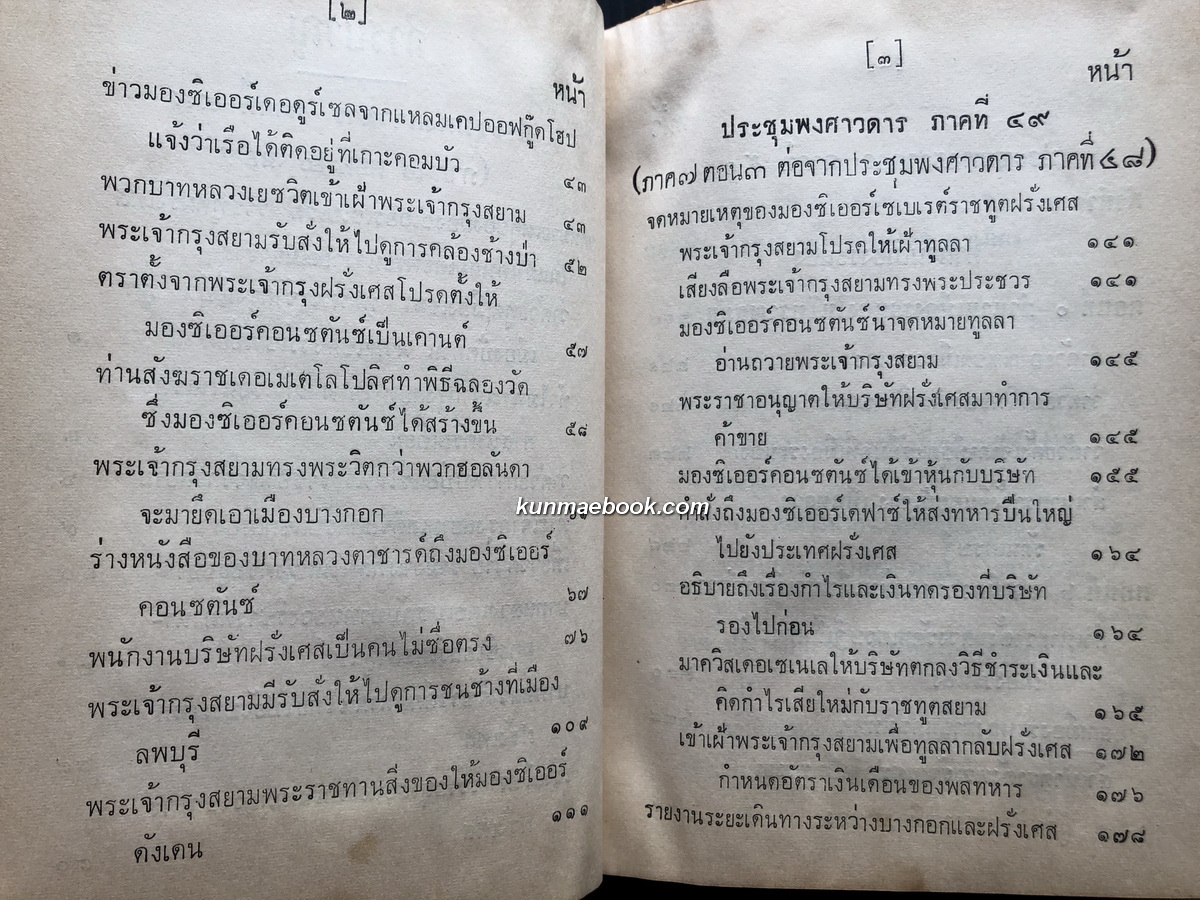 [๒]
หน้า
ข่าวมองซิเออร์เดอดูร์เซลจากแหลมเคปออฟกู๊ดโฮป
แจ้งว่าเรือได้ติดอยู่ที่เกาะคอมบัว ๔๓
พวกบาทหลวงเยซวิตเข้าเฝ้าพระเจ้ากรุงสยาม ๔๓
พระเจ้ากรุงสยามรับสั่งให้ไปดูการคล้องช้างป่า ๕๒
ตราตั้งจากพระเจ้ากรุงฝรั่งเศสโปรดตั้งให้
มองซิเออร์คอนซตันซ์เป็นเคานต์ ๕๗
ท่านสังฆราชเดอเมเตโลโปลิศทำพิธีฉลองวัด
ซึ่งมองซิเออร์คอนซตันซ์ได้สร้างขึ้น ๕๘
พระเจ้ากรุงสยามทรงพระวิตกว่าพวกฮอลันดา
จะมายึดเอาเมืองบางกอก
ร่างหนังสือของบาทหลวงตาชารด์ถึงมองซิเออร์
คอนซตันซ์ ๖๗
พนักงานบริษัทฝรั่งเศสเป็นคนไม่ซื่อตรง ๗๖
พระเจ้ากรุงสยามมีรับสั่งให้ไปดูการชนช้างที่เมือง
ลพบุรี ๑๐๙
พระเจ้ากรุงสยามพระราชทานสิ่งของให้มองซิเออร์
ดังเดน ๑๑๑
[๓]
หน้า
ประชุมพงศาวดาร ภาคที่ ๔๙
(ภาค๗ ตอน๓ ต่อจากประชุมพงศาวดาร ภาคที่ ๔๘)
จดหมายเหตุของมองซิเออร์เซเบเรต์ราชทูตฝรั่งเศส
พระเจ้ากรุงสยามโปรดให้เฝ้าทูลลา ๑๔๑
เสียงลือพระเจ้ากรุงสยามทรงพระประชวร ๑๔๑
มองซิเออร์คอนซตันซ์นำจดหมายทูลลา
อ่านถวายพระเจ้ากรุงสยาม ๑๔๕
พระราชาอนุญาตให้บริษัทฝรั่งเศสมาทำการ
ค้าขาย ๑๔๕
มองซิเออร์คอนซตันซ์ได้เข้าหุ้นกับบริษัท ๑๕๕
คำสั่งถึงมองซิเออร์เดฟาซ์ให้ส่งทหารปืนใหญ่
ไปยังประเทศฝรั่งเศส ๑๖๔
อธิบายถึงเรื่องกำไรและเงินทดรองที่บริษัท
รองไปก่อน ๑๖๔
มาควิสเดอเซเนเลให้บริษัทตกลงวิธีชำระเงินและ
คิดกำไรเสียใหม่กับราชทูตสยาม ๑๖๕
เข้าเฝ้าพระเจ้ากรุงสยามเพื่อทูลลากลับฝรั่งเศส ๑๗๒
กำหนดอัตราเงินเดือนของพลทหาร ๑๗๖
รายงานระยะเดินทางระหว่างบางกอกและฝรั่งเศส ๑๗๘
kunmaebook.com